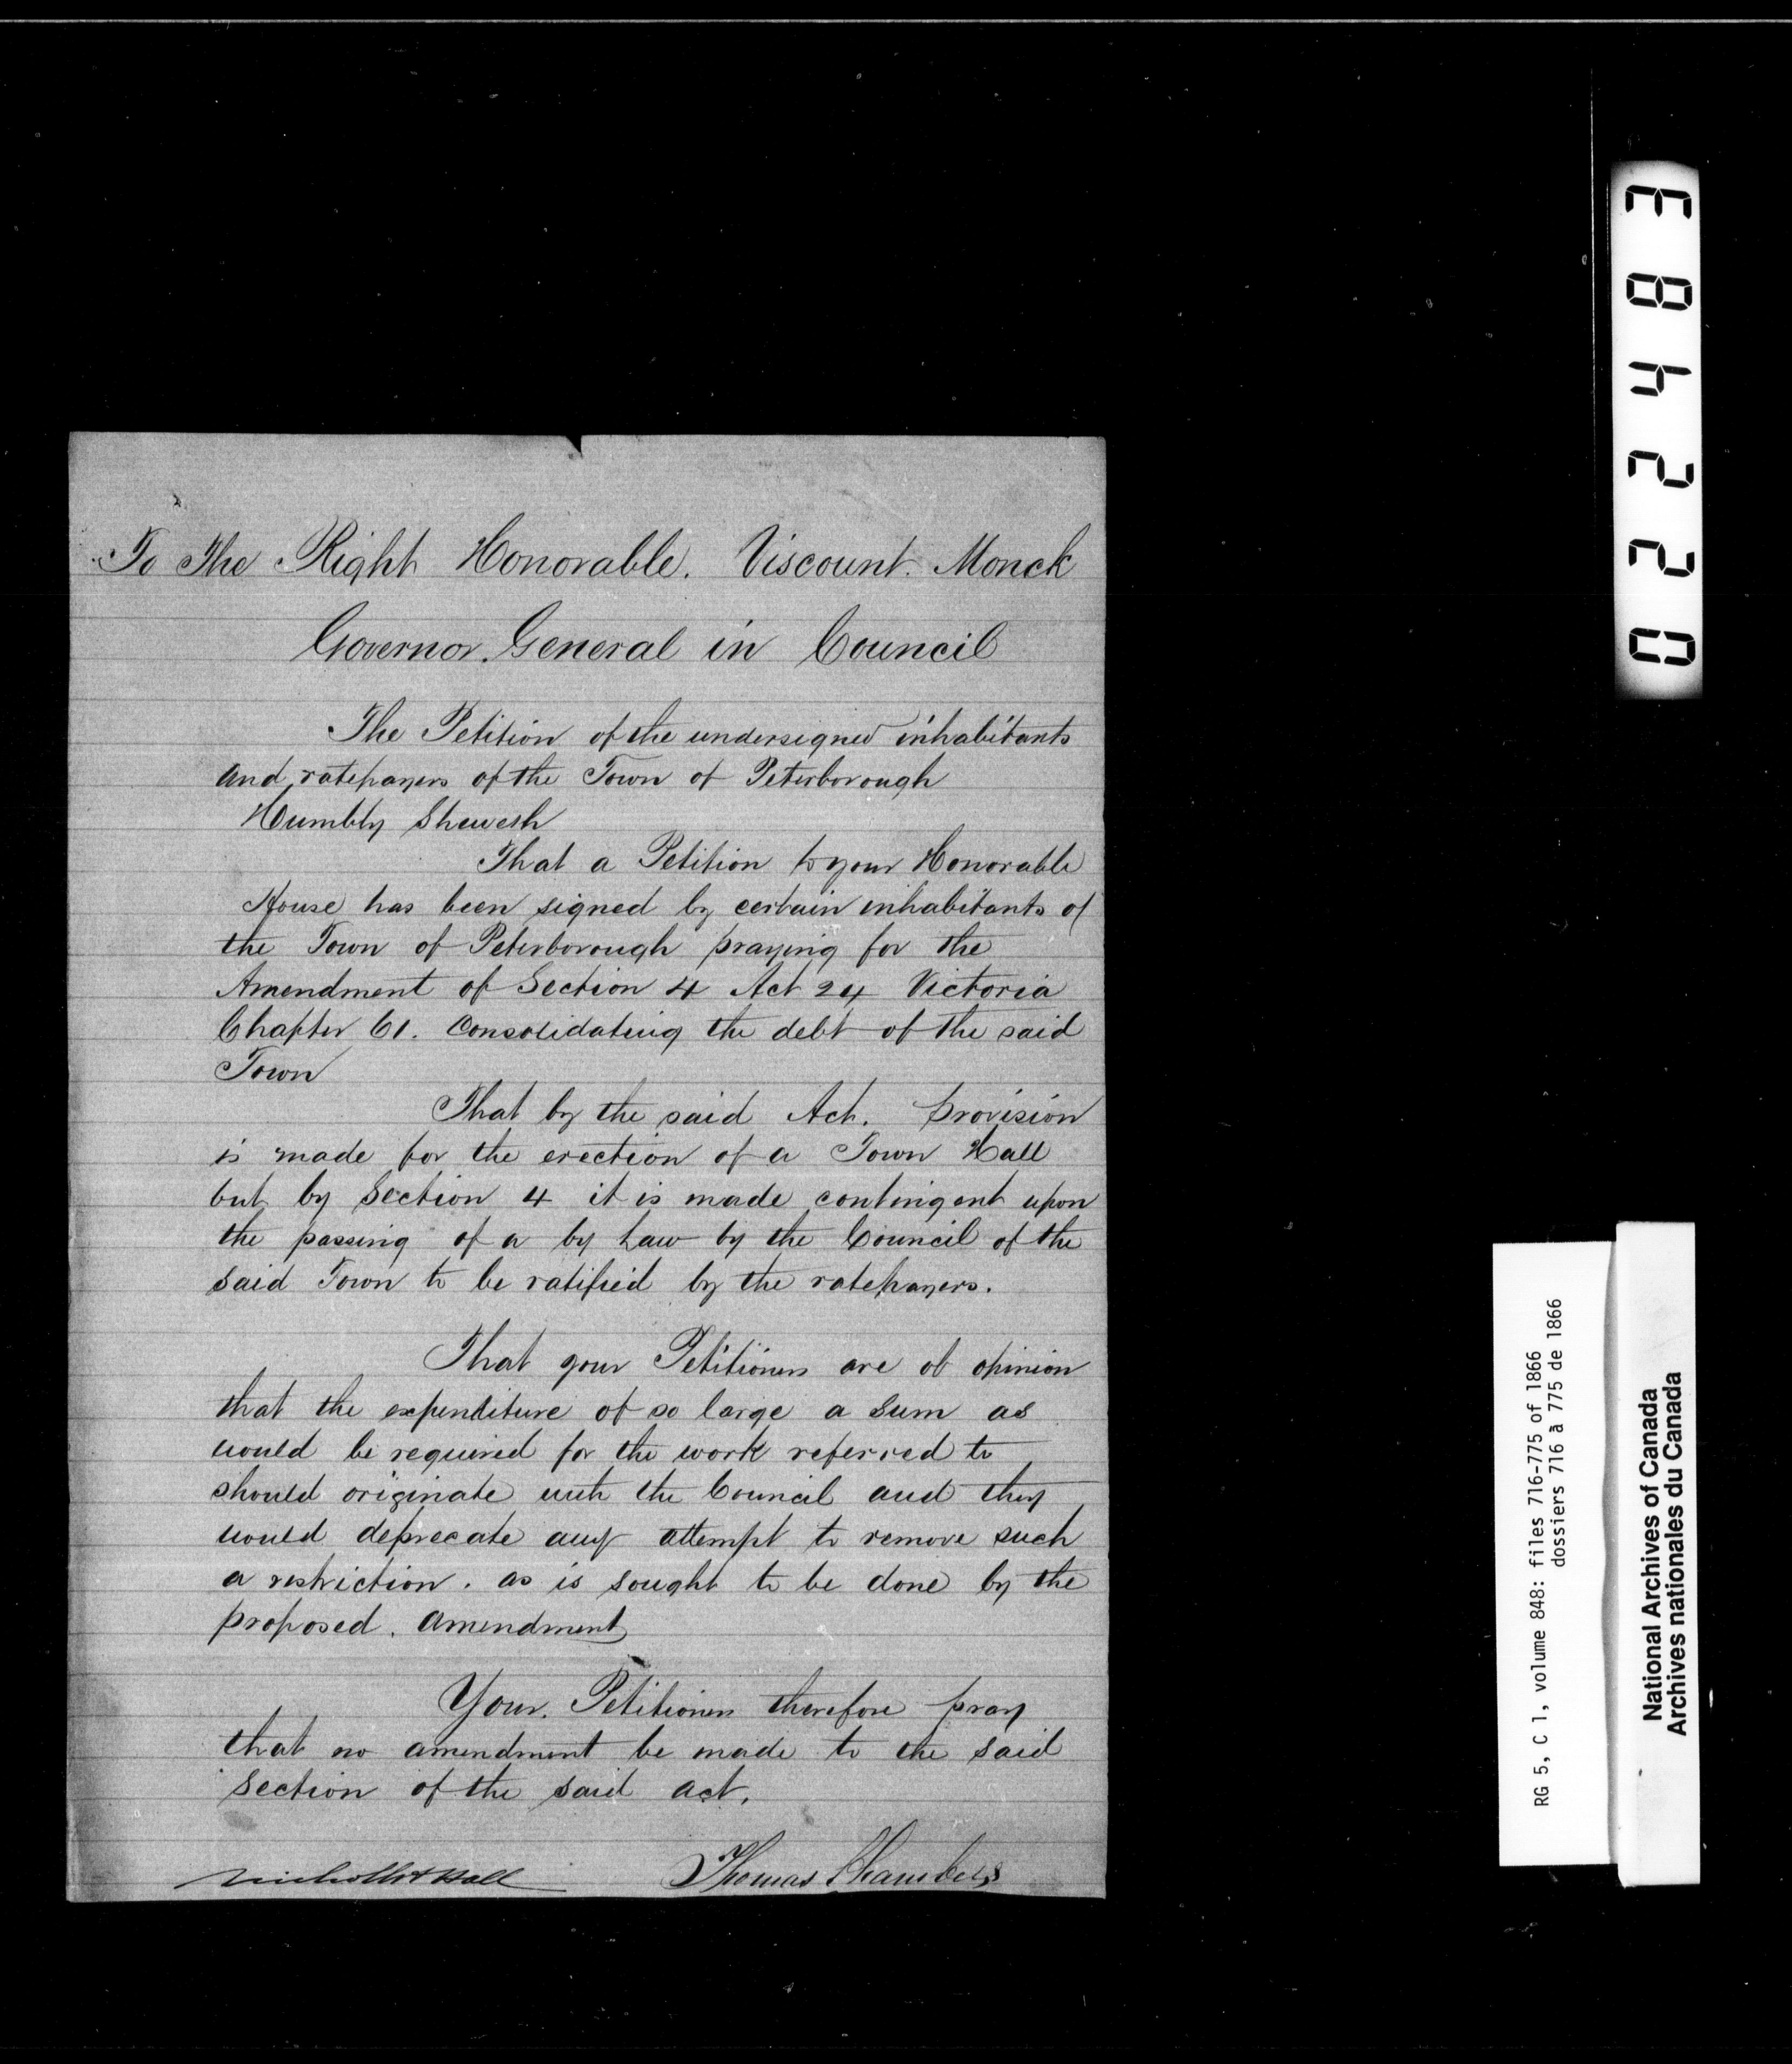 To The Right Honorable. Viscount. Monck
Governor. General in Council
The Petition of the undersigned inhabitants
and ratepayers of the Town of Peterborough
Humbly Sheweth
That a Petition to your Honorable
House has been signed by certain inhabitants of
the Town of Peterborough praying for the
Amendment of Section 4 Act 24 Victoria
Chapter 61. Consolidating the debt of the said
Town
That by the said Act. provision
is made for the erection of a Town Hall
but by Section 4 it is made contingent upon
the passing of a by Law by the Council of the
said Town to be ratified by the ratepayers.
That your Petitioners are of opinion
that the expenditure of so large a sum as
would be required for the work referred to
should originate with the Council and they
would deprecate any attempt to remove such
a restriction. as is sought to be done by the
proposed. amendment
Your. Petitioners therefore pray
that no amendment be made to the said
Section of the said act.
Nicholls & Hall Thomas Chambers
022483
RG 5, C 1, volume 848: files 716-775 of 1866
dossiers 716 à 775 de 1866
National Archives of Canada
Archives nationales du Canada